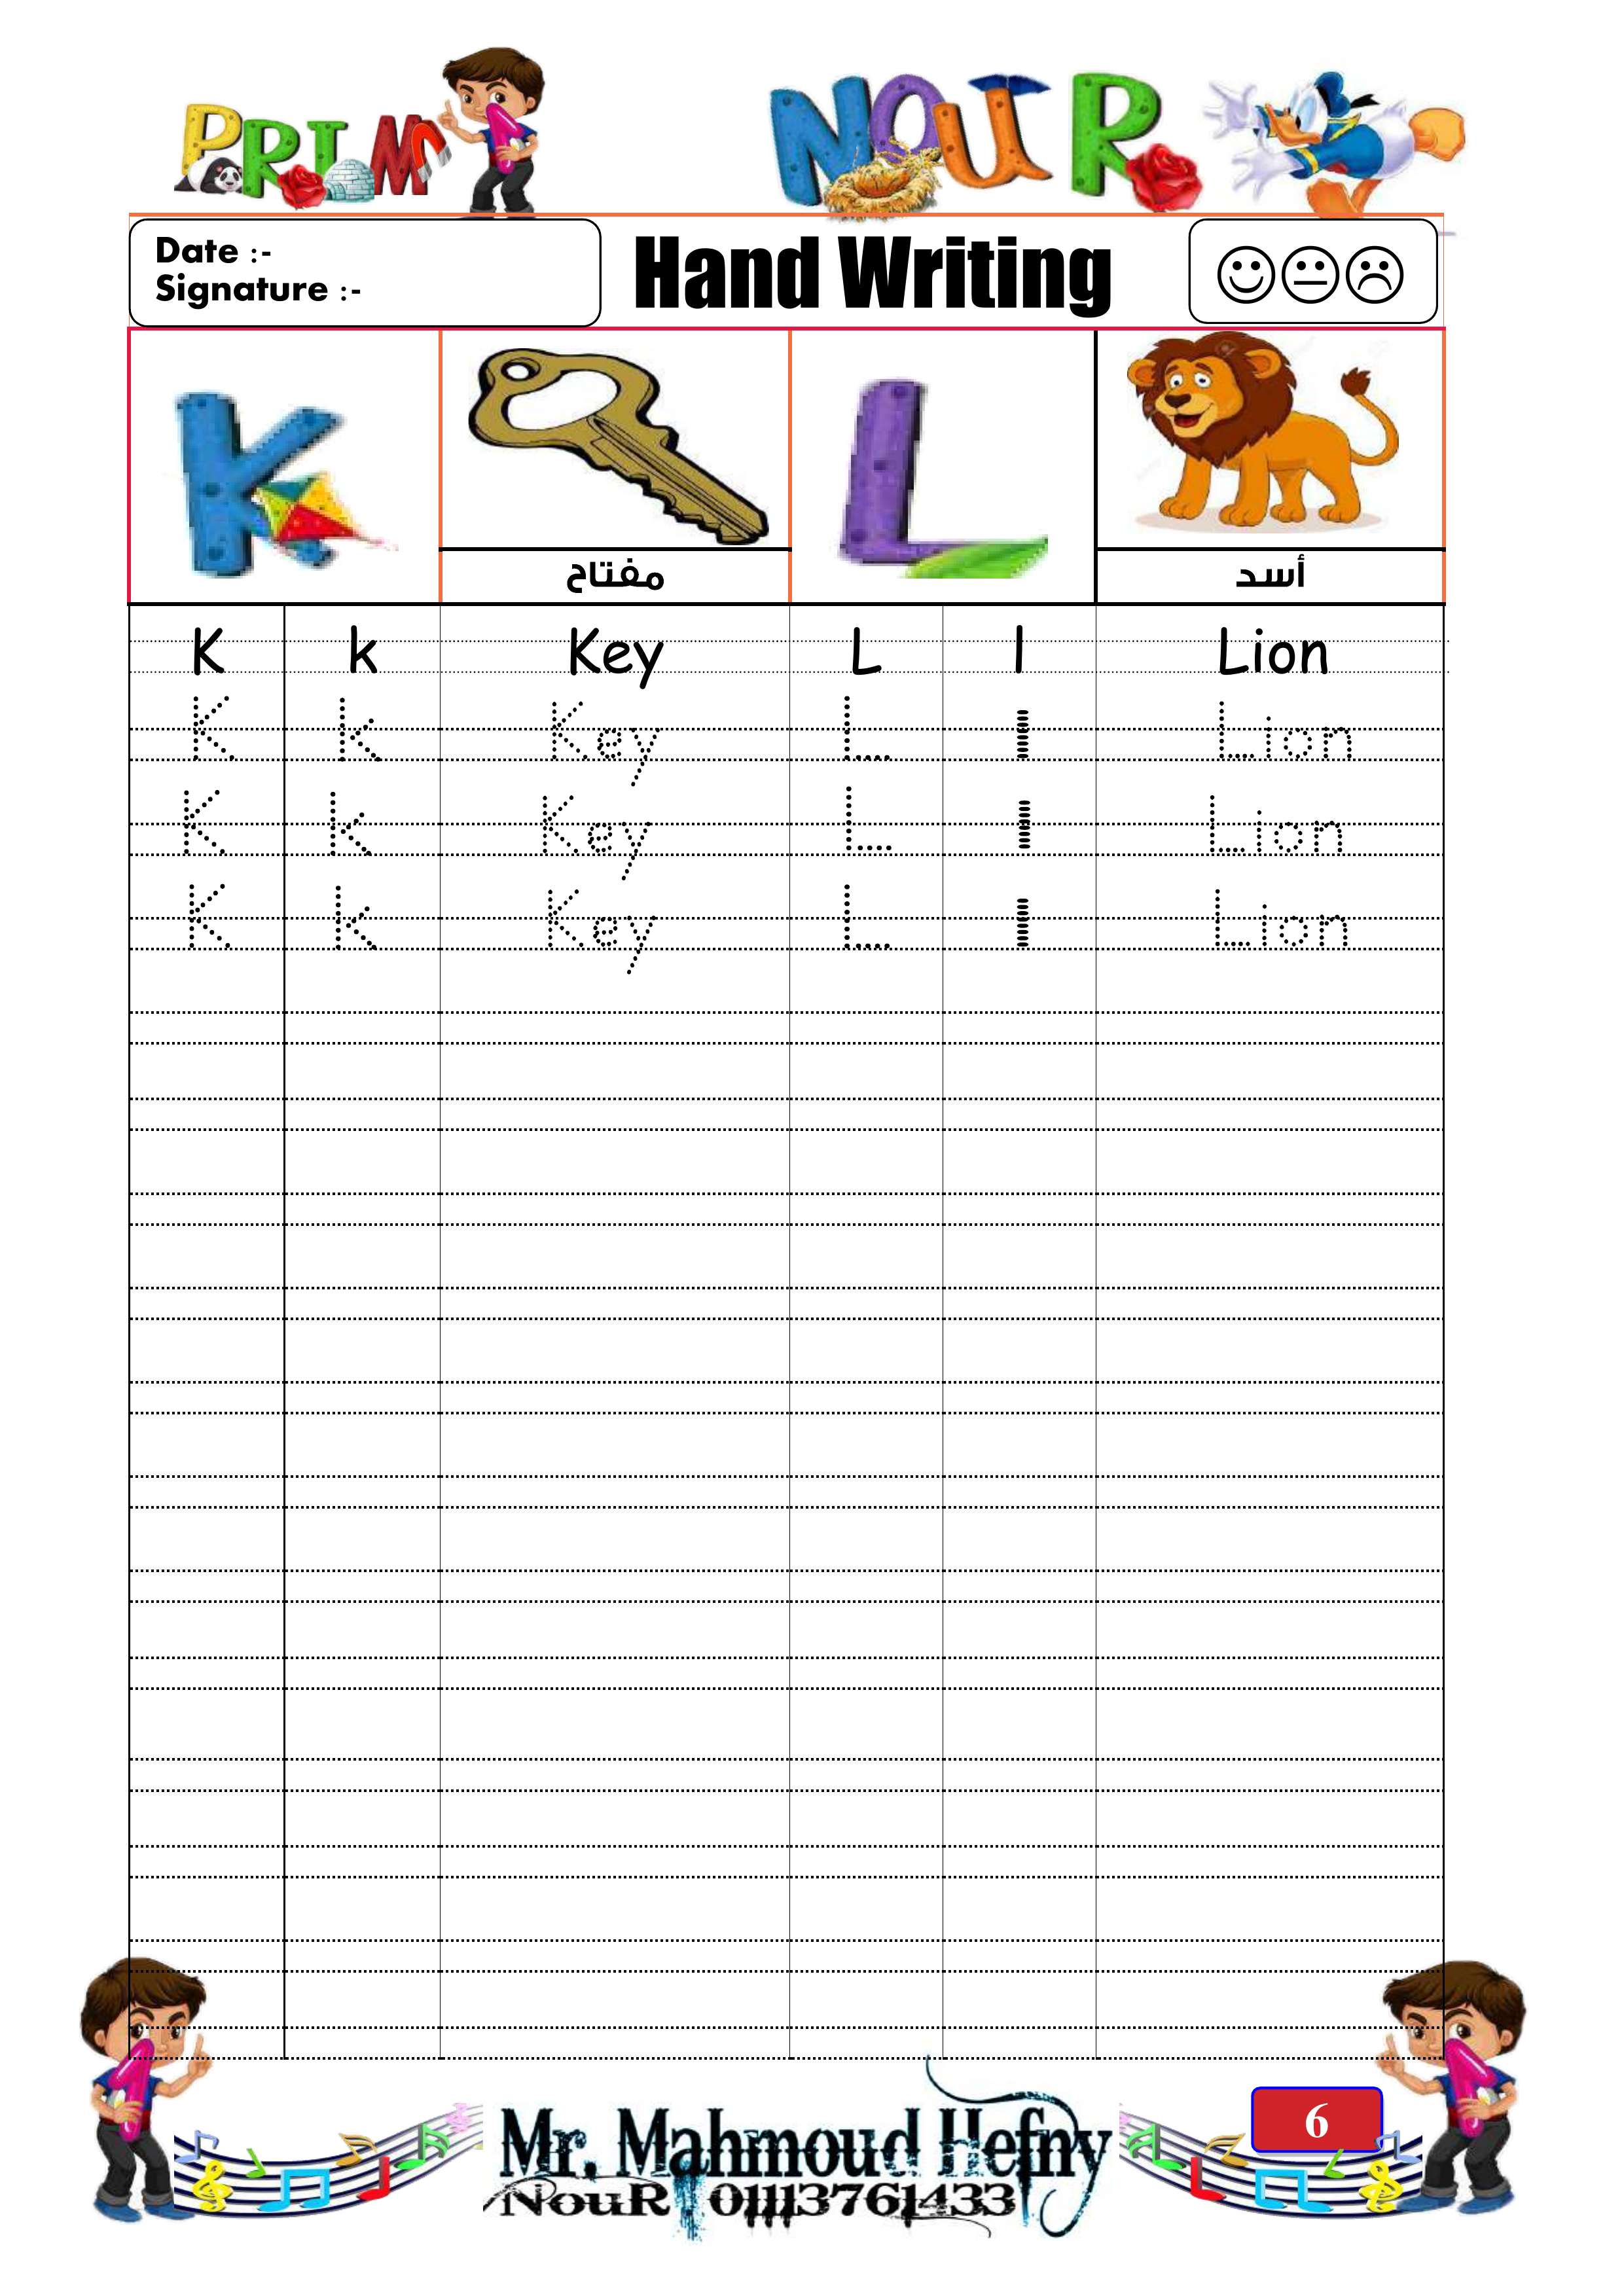 PRIM 1 NOUR
Date :-
Signature :-
Hand Writing
K L
مفتاح أسد
K k Key L l Lion
K k Key L l Lion
K k Key L l Lion
K k Key L l Lion
6
Mr. Mahmoud Hefny
NouR 01113761433